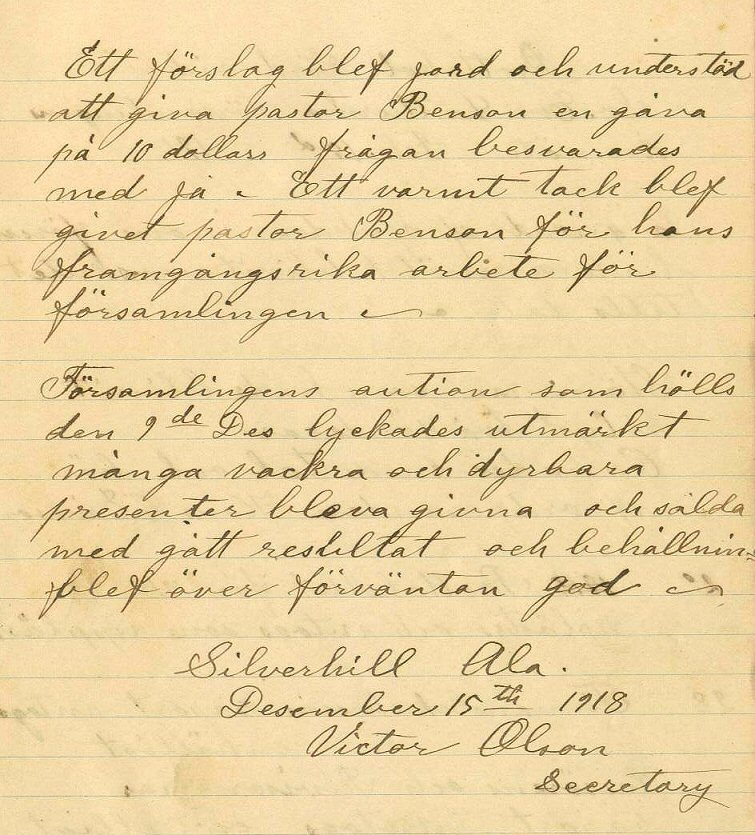 Ett förslag blef jord och understöd
att giva pastor Benson en gåva
på 10 dollars frågan besvarades
med ja. Ett varmt tack blef
givet pastor Benson för hans
framgångsrika arbete för
församlingen
Församlingens aution som hölls
den 9de Des lyckades utmärkt
många vackra och dyrbara
presenter bleva givna och sålda
med gått resultat och behållnin=
blef över förväntan god
Silverhill Ala.
Desember 15th 1918
Victor Olson
Secretary